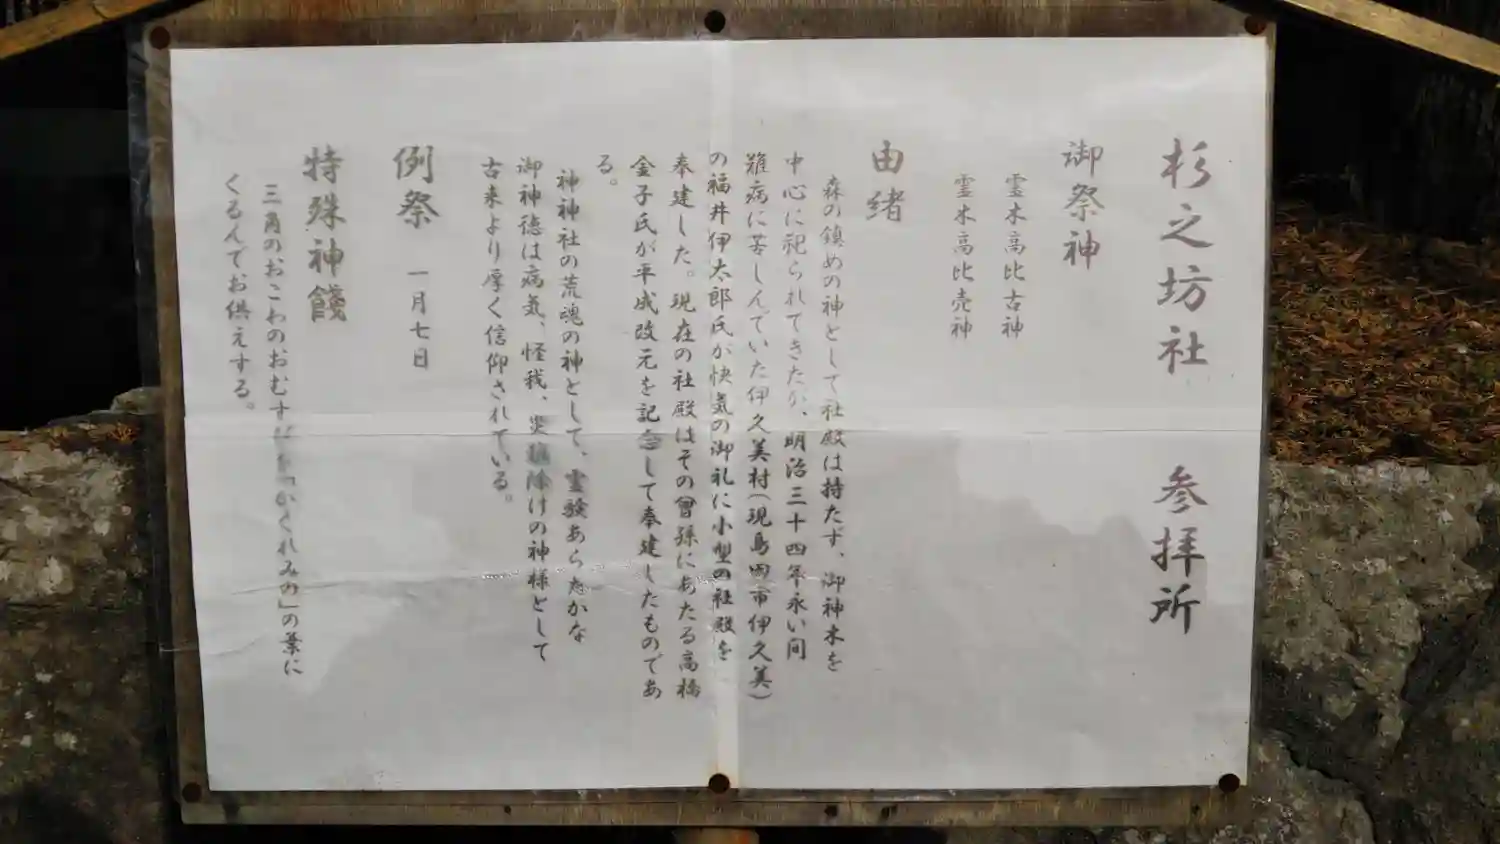 杉之坊社 参拝所
御祭神
霊木高比古神
霊木高比売神
由緒
森の鎮めの神として社殿は持たず、御神木を
中心に祀られてきたが、明治三十四年永い間
難病に苦しんでいた伊久美村(現島田市伊久美)
の福井伊太郎氏が快気の御礼に小型の社殿を
奉建した。現在の社殿はその曾孫にあたる高橋
金子氏が平成改元を記念して奉建したものであ
る。
神神社の荒魂の神として、霊験あらたかな
御神徳は病気、怪我、災難除けの神様として
古来より厚く信仰されている。
例祭 一月七日
特殊神饌
三角のおこわのおむすびを「かくれみの」の葉に
くるんでお供えする。